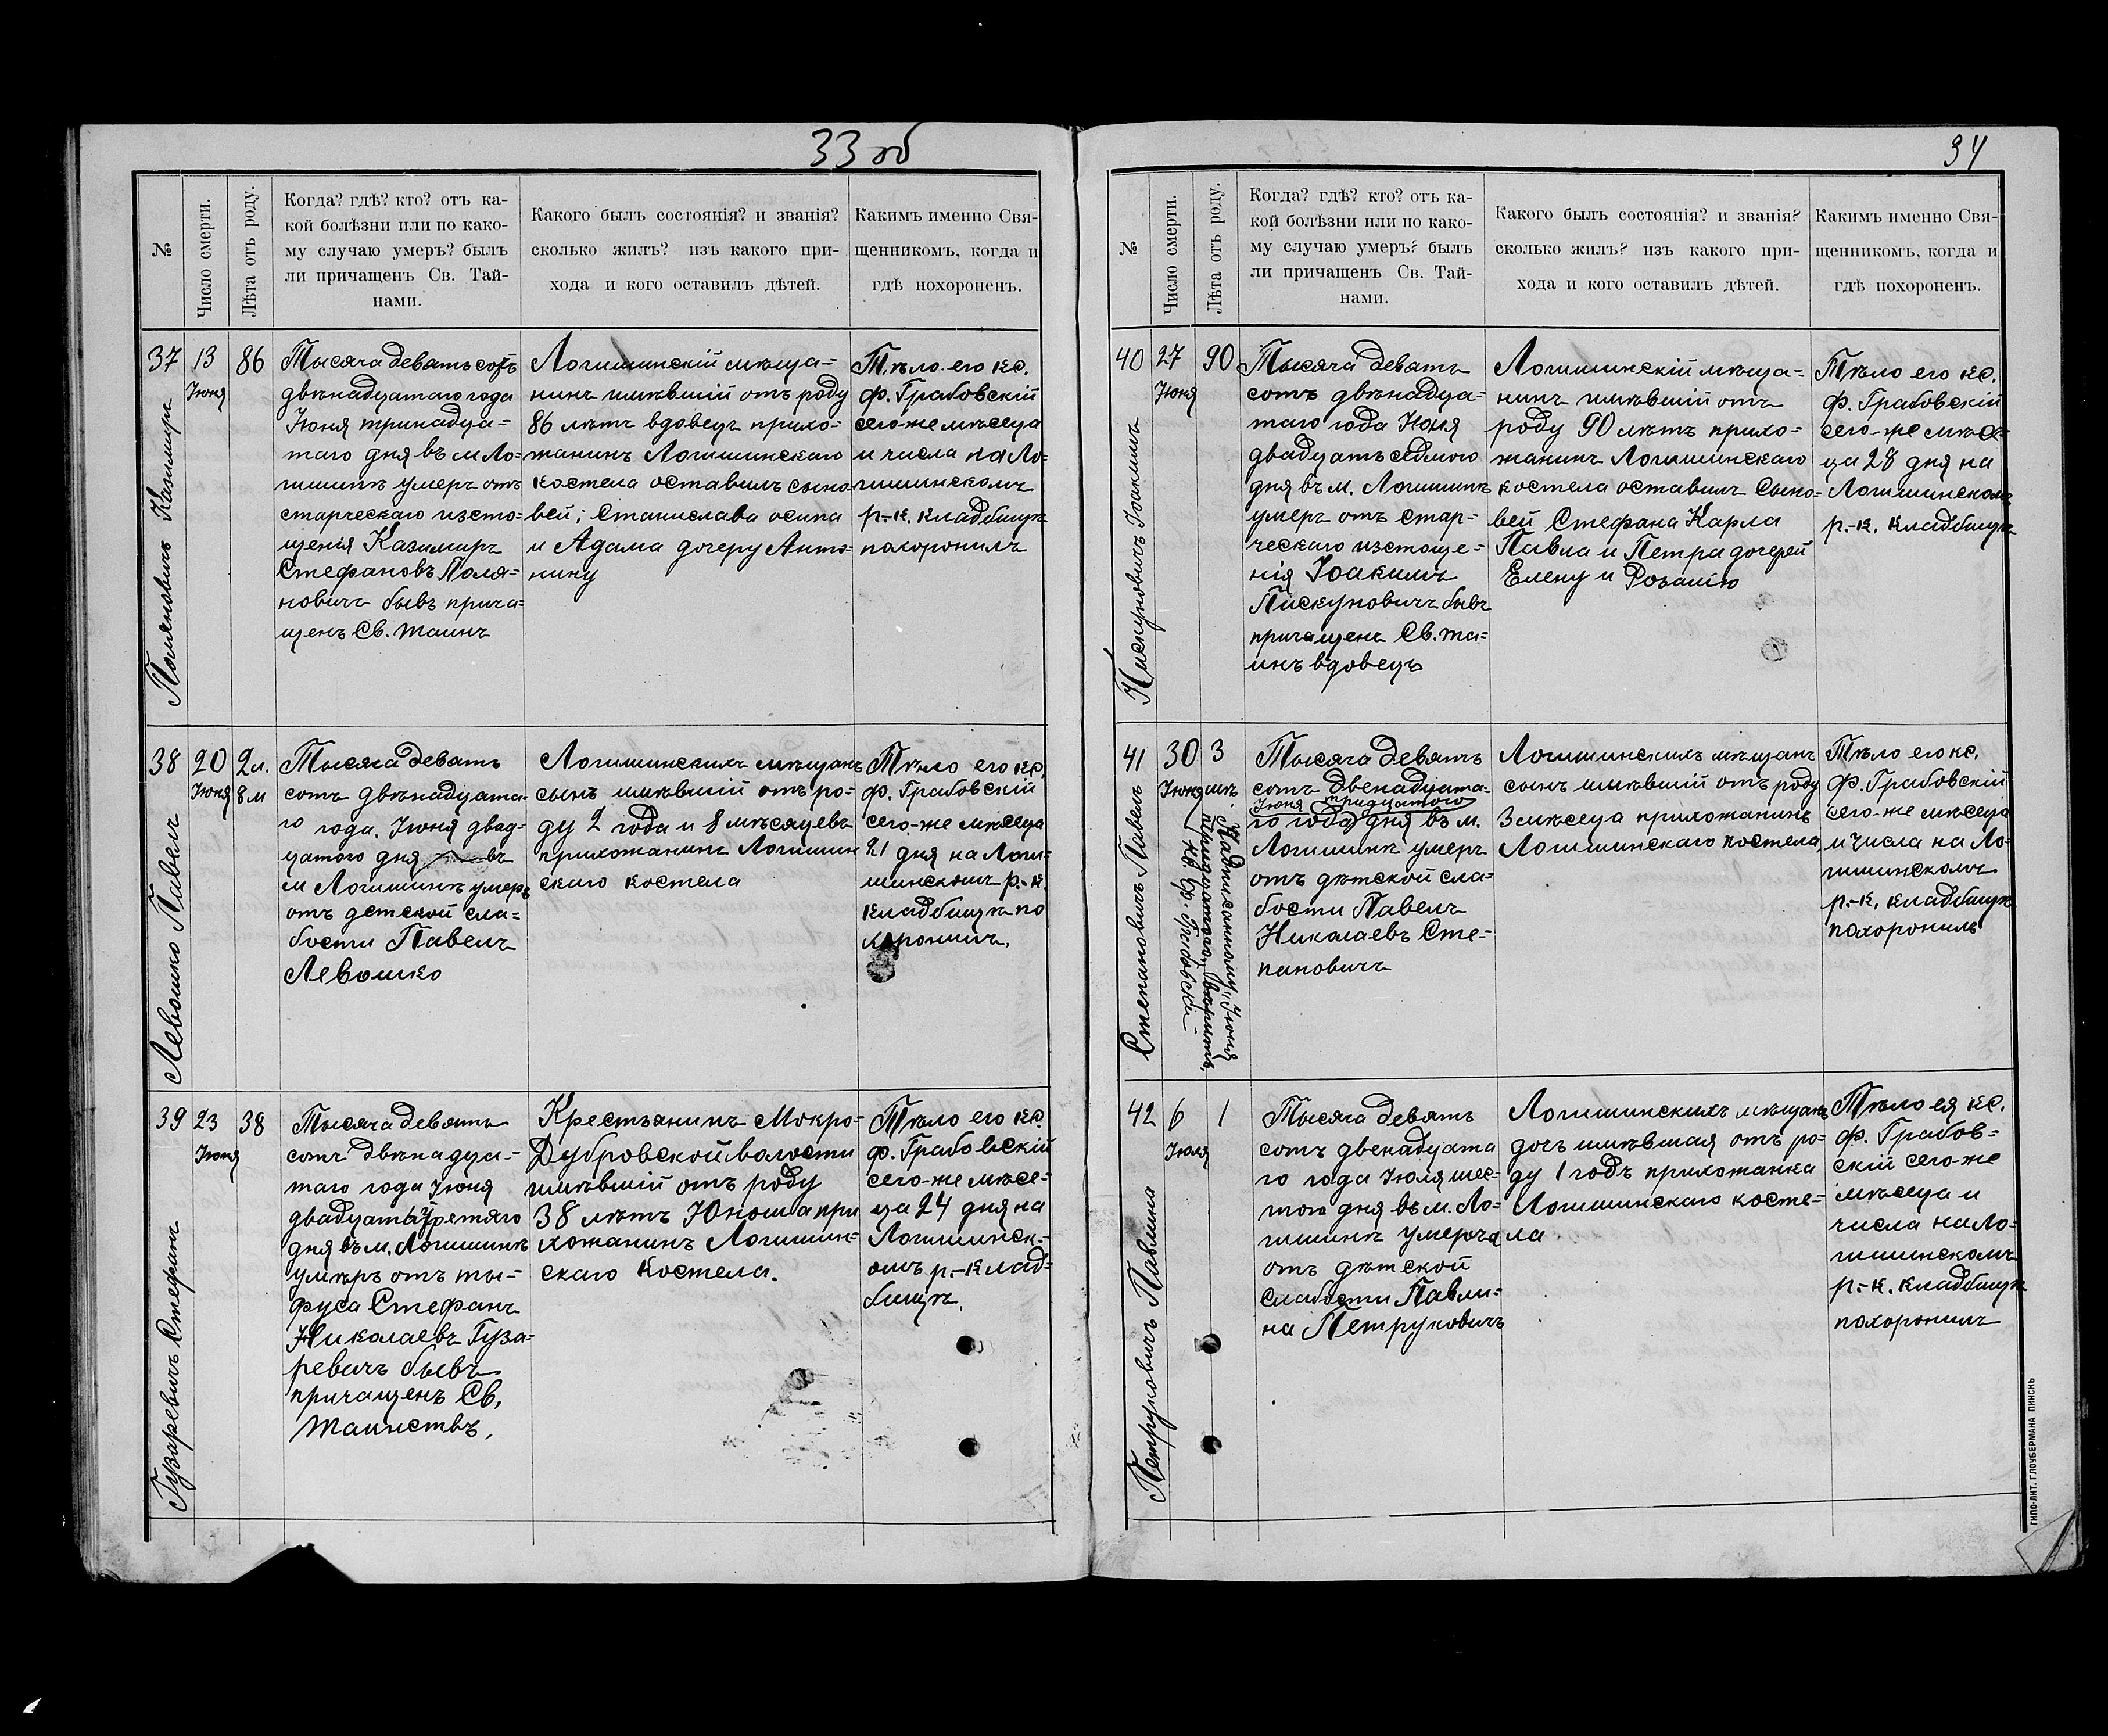 33 об
№
Число смерти.
Лѣта отъ роду.
Когда? гдѣ? кто? отъ ка-
кой болѣзни или по како-
му случаю умеръ? былъ
ли причащенъ Св. Тай-
нами.
Какого былъ состоянія? и званія?
сколько жилъ? изъ какого при-
хода и кого оставилъ дѣтей.
Какимъ именно Свя-
щенникомъ, когда и
гдѣ нохороненъ.
37
Поляновичъ Казимиръ
13
Іюня
86
Тысяча девятьсотъ
двѣнадцатаго года
Іюня тринадца-
таго дня въ м Ло-
гишинѣ умеръ отъ
старческаго исто-
щенія Казимиръ
Стефановъ Поля-
новичъ бывъ прича-
щенъ Св. таинъ
Логишинскій мѣща-
нинъ имѣвшій отъ роду
86 лѣтъ вдовецъ прихо-
жанинъ Логишинскаго
костела оставилъ сыно-
вей; Станислава осипа
и Адама дочеру Анто-
нину
Тѣло его кс.
Ф. Грабовскій
сего-же мѣсеца
и числа на Ло-
гишинскомъ
р.-к. кладбищѣ
похоронилъ
38
Левошко Павелъ
20
Іюня
2 л.
8 м
Тысяча девять
сотъ двѣнадцата-
го года. Іюня двад-
цатого дня въ
м Логишинѣ умеръ
отъ детской сла-
бости Павелъ
Левошко
Логишинскихъ мѣщанъ
сынъ имѣвшій отъ ро-
ду 2 года и 8 мѣсяцевъ
прихожанинъ Логишин
скаго костела
Тѣло его кс.
Ф. Грабовскій
сего-же мѣсеца
21 дня на Логи-
шинскомъ р.-к.
кладбищѣ по
хоронилъ.
39
Гузаревичъ Стефанъ
23
Іюня
38
Тысяча девять
сотъ двѣнадца-
таго года Іюня
двадцать третяго
дня въ м. Логишинѣ
умѣръ отъ ты-
фуса Стефанъ
Николаевъ Гуза-
ревичъ бывъ
причащенъ Св.
Таинствъ.
Крестьянинъ Мокро-
Дубровской волости
имѣвшій отъ роду
38 лѣтъ Юноша при
хожанинъ Логишин-
скаго костела.
Тѣло его кс.
Ф. Грабовскій
сего-же мѣсе-
ца 24 дня на
Логишинск-
омъ р.-к клад-
бищѣ.
34
№
Число смерти.
Лѣта отъ роду.
Когда? гдѣ? кто? отъ ка-
кой болѣзни или по како-
му случаю умеръ? былъ
ли причащенъ Св. Тай-
нами.
Какого былъ состоянія? и званія?
сколько жилъ? изъ какого при-
хода и кого оставилъ дѣтей.
Какимъ именно Свя-
щенникомъ, когда и
гдѣ похороненъ.
40
Пискуновичъ Іоакимъ
27
Іюня
90
Тысяча девять
сотъ двѣнадца-
таго года Іюня
двадцать седмого
дня въ м. Логишинѣ
умеръ отъ стар-
ческаго истоще-
нія Іоакимъ
Пискуновичъ бывъ
причащенъ Св. та-
инъ вдовецъ
Логишинскій мѣща-
нинъ имѣвшій отъ
роду 90 лѣтъ прихо-
жанинъ Логишинскаго
костела оставилъ Сыно-
вей Стефана Карла
Павла и Петра дочерей
Елену и Розалію
Тѣло его кс.
Ф. Грабовскій
сего-же мѣсе-
ца 28 дня на
Логишинскомъ
р.-к. кладбищѣ
41
Степановичъ Павелъ
30
Іюня
3
мѣ.
Надписанному "Іюня
тридцатого" вѣрить,
кс. Ф. Грабовскій
Тысяча девять
сотъ двенадцата-
Іюня тридцатого
го года дня въ м.
Логишинѣ умеръ
отъ дѣтской сла-
бости Павелъ
Николаевъ Сте-
пановичъ
Логишинскихъ мѣщанъ
сынъ имѣвшій отъ роду
3 мѣсеца прихожанинъ
Логишинскаго костела,
Тѣло его кс.
Ф. Грабовскій
сего-же мѣсеца
и числа на Ло-
гишинскомъ
р.-к. кладбищѣ
похоронилъ
42
Петруковичъ Павлина
6
Іюля
1
Тысяча девять
сотъ двенадцата
го года Іюля шес-
того дня въ м. Ло-
гишинѣ умерла
отъ дѣтской
слабости Павли-
на Петруковичъ
Логишинскихъ мѣщанъ
дочь имѣвшая отъ ро-
ду 1 годъ прихожанка
Логишинскаго косте-
ла
Тѣло ея кс.
Ф. Грабов-
скій сего-же
мѣсеца и
числа на Ло-
гишинскомъ
р.-к. кладбищѣ
похоронилъ
ТИПО-ЛИТ. Г.ГЛОУБЕРМАНА ПИНСКЪ